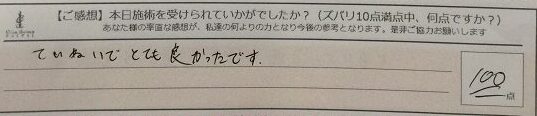 【ご感想】本日施術を受けられていかがでしたか？（ズバリ10点満点中、何点ですか？）
あなた様の率直な感想が、私達の何よりの力となり今後の参考となります。是非ご協力お願いします
ていねいで とても 良かったです.
100
点